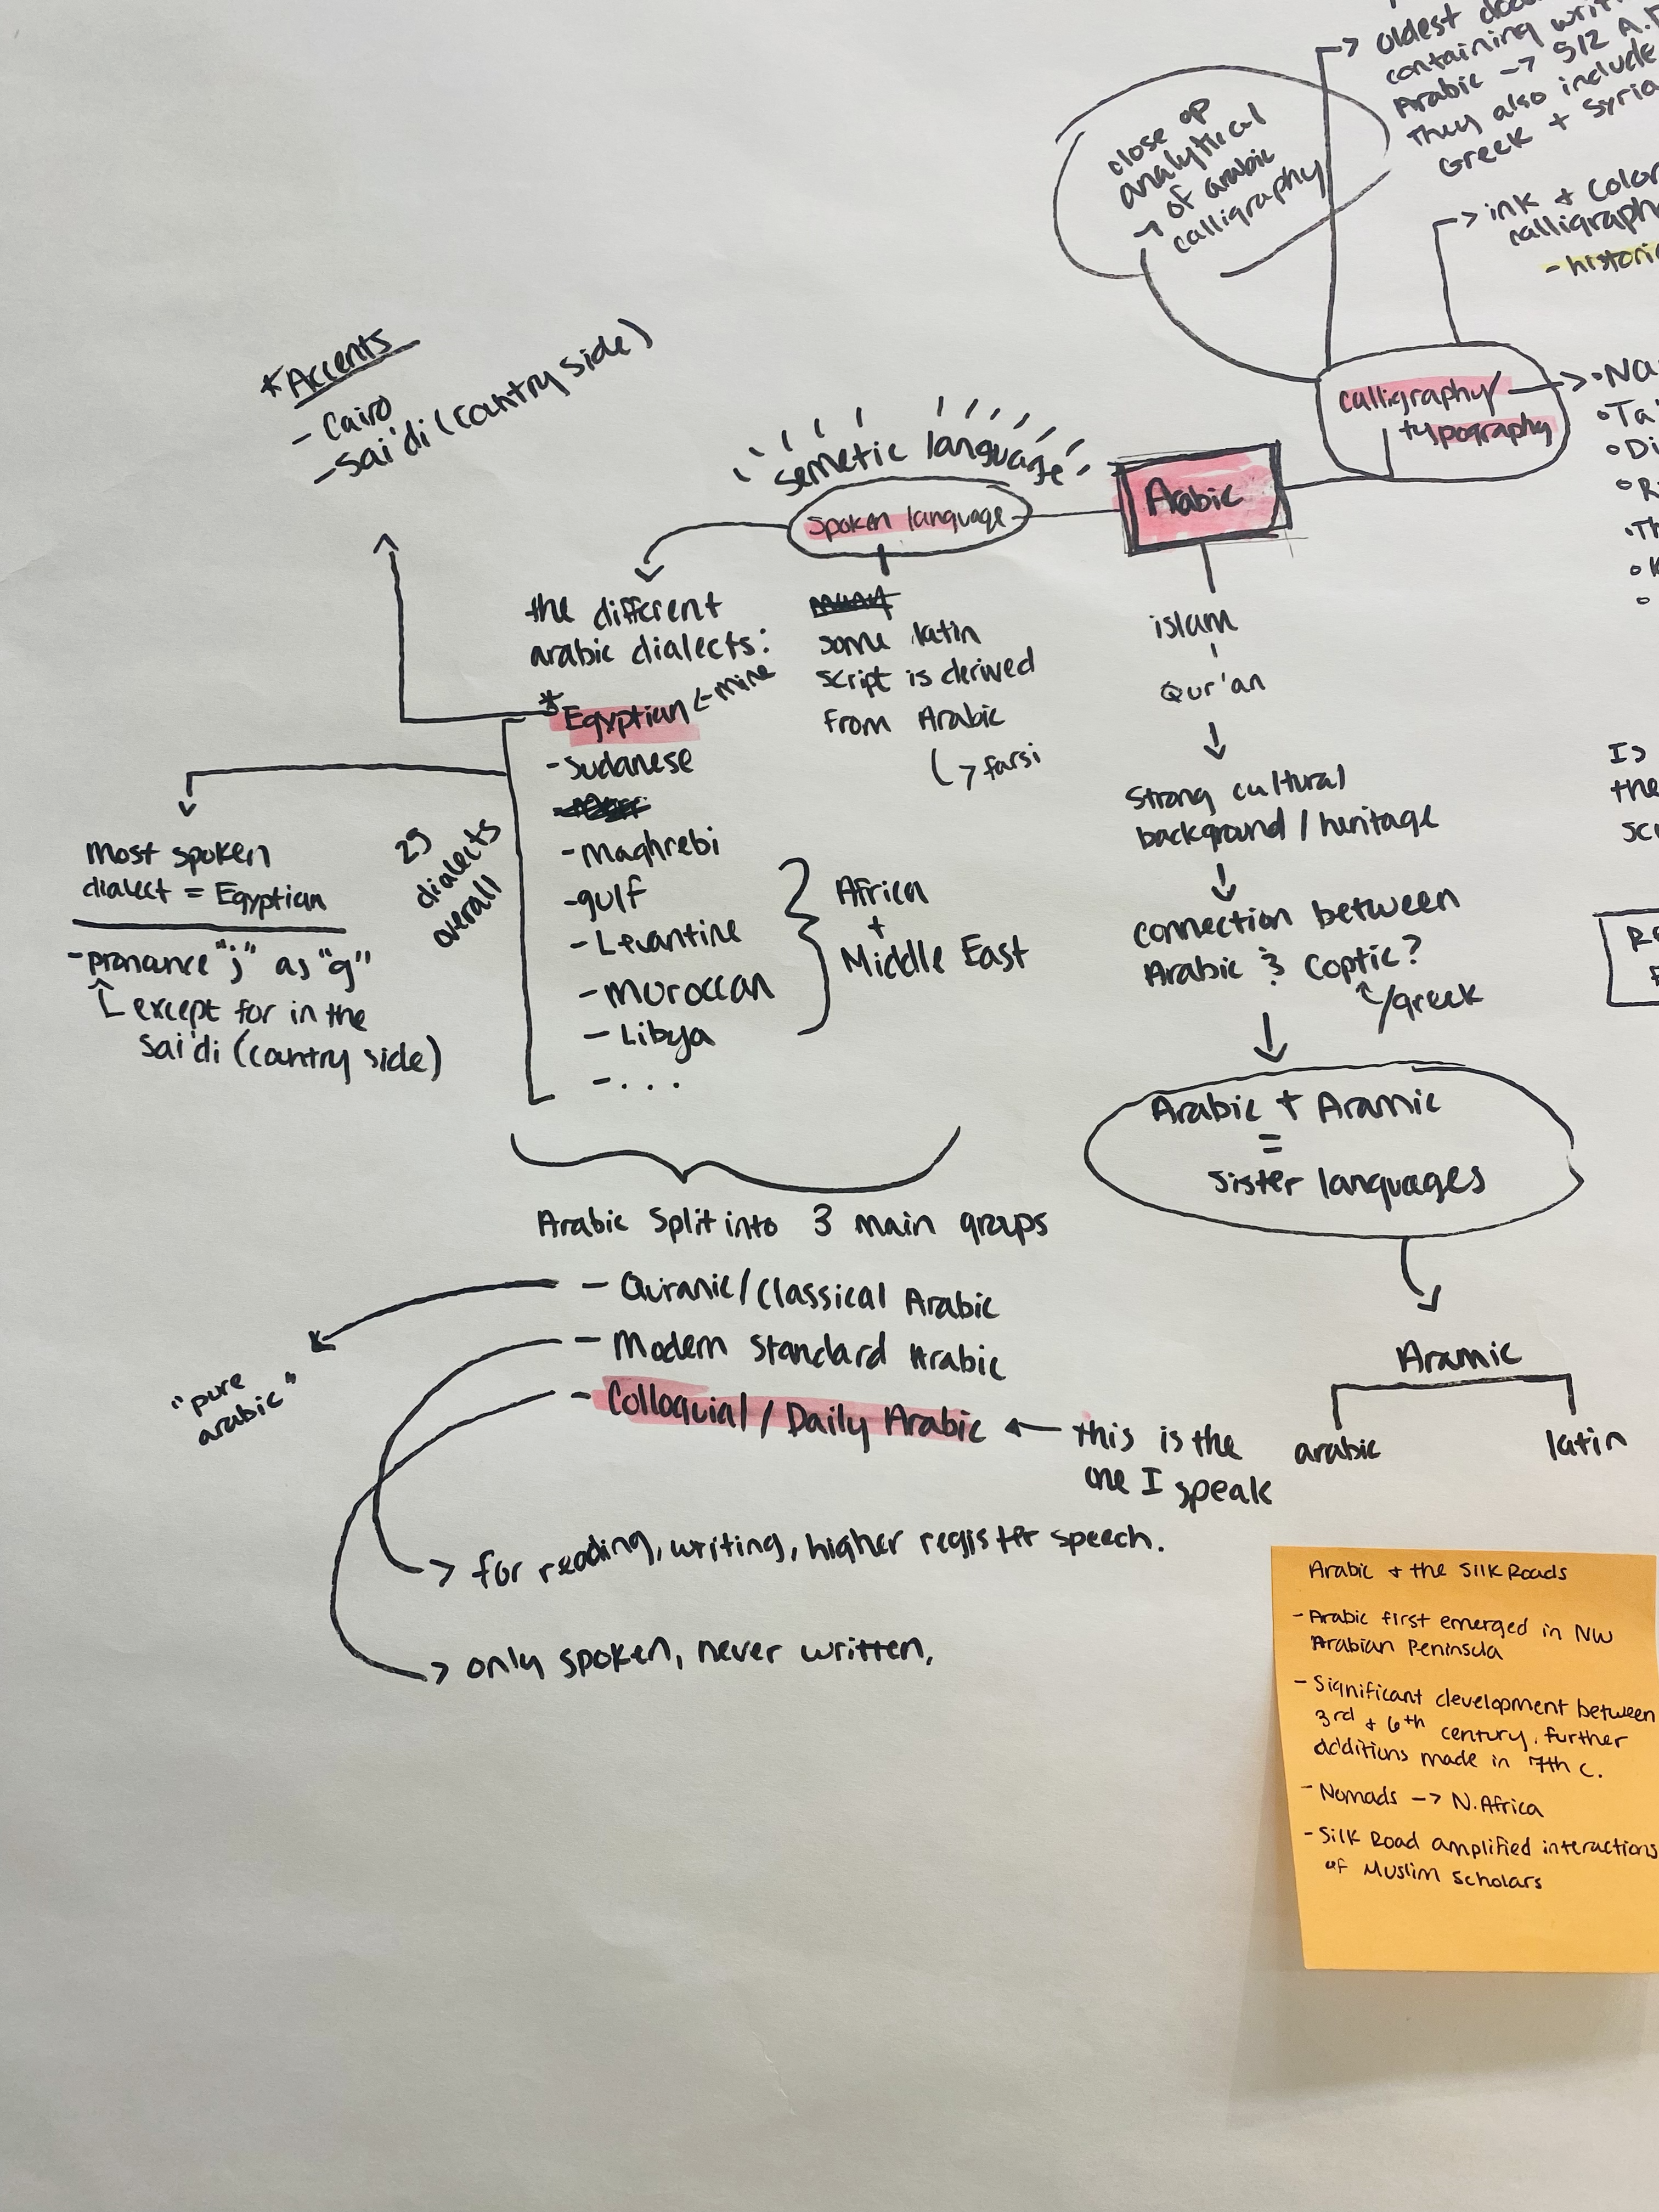 oldest
containing
Arabic -> 512 A.D
they also include
Greek + Syria
close up
analytical
-> of arabic
calligraphy
-> ink + color
calligraph
- histori
calligraphy/
typography
*Accents
- Cairo
- Sai'di (cantry side)
semetic language
spoken language
Arabic
the different
arabic dialects:
* Egyptian <- mine
- Sudanese
- Maghrebi
- gulf
- Levantine
- Moroccan
- Libya
- ...
29
dialects
overall
Africa
+
Middle East
some latin
script is derived
from Arabic
-> farsi
islam
Qur'an
Strong cultural
background / heritage
connection between
Arabic & Coptic?
/greek
Arabic + Aramic
=
sister languages
Aramic
arabic
latin
Most spoken
dialect = Egyptian
- pronance "j" as "g"
except for in the
Sai'di (cantry side)
Arabic Split into 3 main groups
- Quranic/Classical Arabic
- Modern Standard Arabic
- Colloquial / Daily Arabic <- this is the
one I speak
"pure
arabic"
-> for reading, writing, higher register speech.
-> only spoken, never written,
Arabic + the Silk Roads
- Arabic first emerged in NW
Arabian Peninsula
- Significant development between
3rd + 6th century, further
additions made in 7th c.
- Nomads -> N. Africa
- Silk Road amplified interactions
of Muslim Scholars